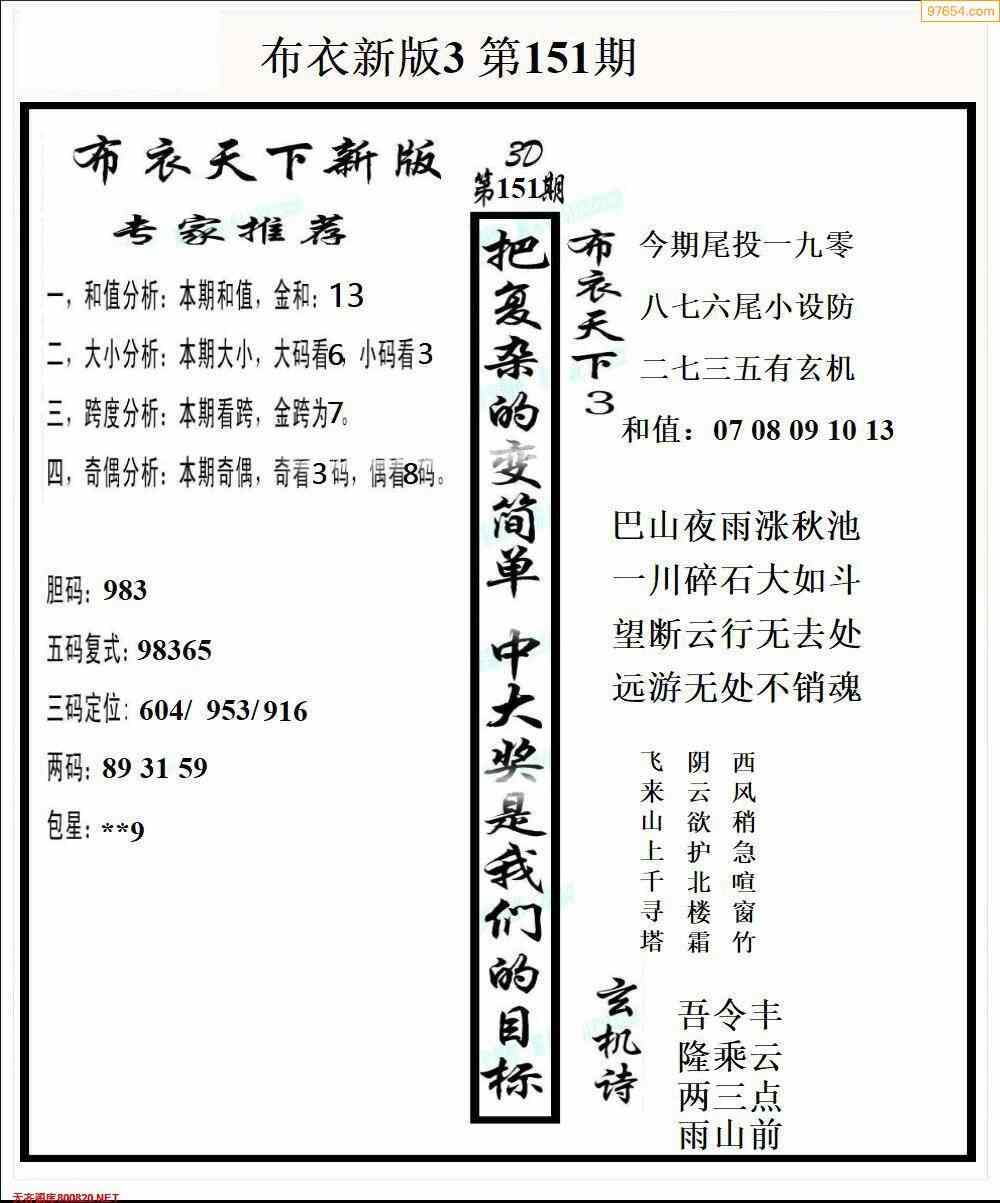 97654.com
布衣新版3 第151期
布衣天下新版
专家推荐
一，和值分析：本期和值，金和：13
二，大小分析：本期大小，大码看6，小码看3
三，跨度分析：本期看跨，金跨为7。
四，奇偶分析：本期奇偶，奇看3码，偶看8码。
胆码：983
五码复式：98365
三码定位：604/ 953/916
两码：89 31 59
包星：**9
3D
第151期
把复杂的变简单 中大奖是我们的目标
布衣天下3
今期尾投一九零
八七六尾小设防
二七三五有玄机
和值：07 08 09 10 13
巴山夜雨涨秋池
一川碎石大如斗
望断云行无去处
远游无处不销魂
西风稍急喧窗竹
阴云欲护北楼霜
飞来山上千寻塔
玄机诗
吾令丰
隆乘云
两三点
雨山前
800820.NET